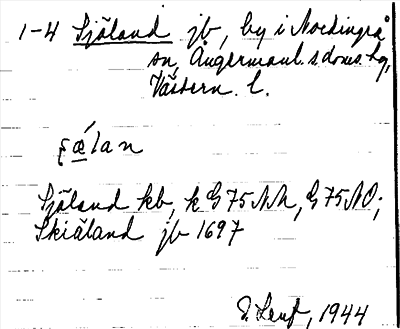 1-4 Själand jb, by i Nordingrå
sn, Ångermanl. s doms. hg,
Västern. l.
ʂǽlan
Själand kb, k G 75 NN, G 75 NO;
Skiäland jb 1697
1944